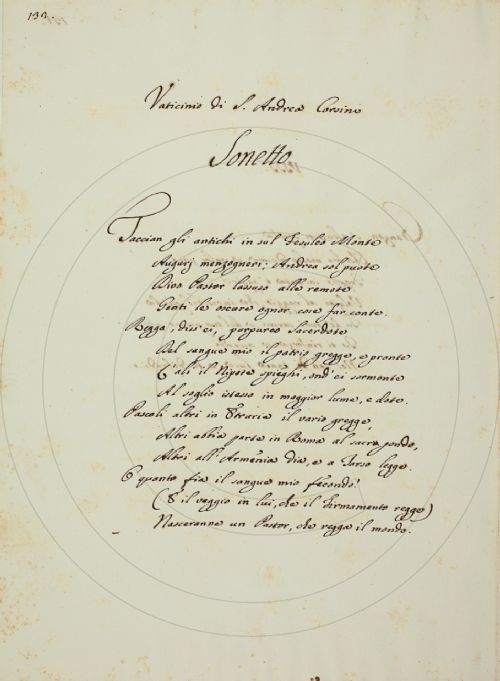 133.
Vaticinio di S. Andrea Corsino
Sonetto
Taccian gli antichi in sul Fesuleo Monte
Augurj menzogneri; Andrea sol puote
Divo Pastor lassuso alle remote
Genti le oscure ognor cose far conte.
Regga, diss'ei, porporeo Sacerdote
Del sangue mio il patrio gregge, e pronte
E ali il Nipote spieghi, ond'ei sormonte
Al soglio istesso in maggior lume, e dote.
Pascoli altri in Tracia il vario gregge,
Altri abbia parte in Roma al sacro pondo,
Altri all'Armenia dia, e a Tarso legge.
O quanto fia il sangue mio fecondo!
(E il veggio in lui, che il Firmamento regge)
Nasceranne un Pastor, che regga il mondo.